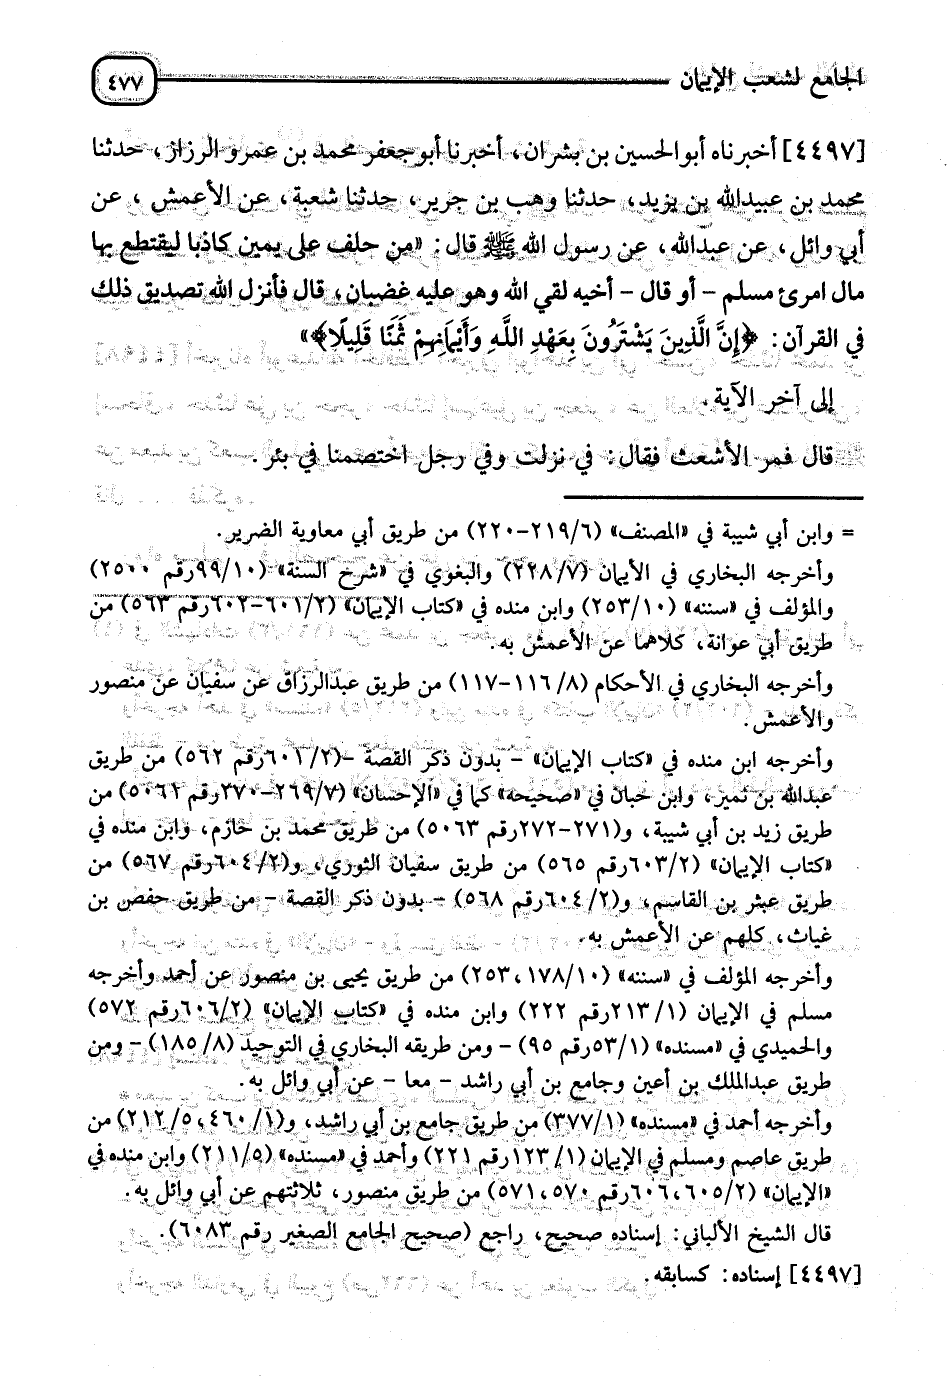 الجامع لشعب الإيمان ٤٧٧
[٤٤٩٧] أخبرناه أبو الحسين بن بشران، أخبرنا أبو جعفر محمد بن عمرو الرزاز، حدثنا
محمد بن عبيدالله بن يزيد، حدثنا وهب بن جرير، حدثنا شعبة، عن الأعمش، عن
أبي وائل، عن عبدالله، عن رسول الله ﷺ قال: «من حلف على يمين كاذبا ليقتطع بها
مال امرئ مسلم - أو قال - أخيه لقي الله وهو عليه غضبان، قال فأنزل الله تصديق ذلك
في القرآن: ﴿إِنَّ الَّذِينَ يَشْتَرُونَ بِعَهْدِ اللَّهِ وَأَيْمَانِهِمْ ثَمَنًا قَلِيلًا﴾»
إلى آخر الآية.
قال فمر الأشعث فقال: في نزلت وفي رجل اختصمنا في بئر.
= وابن أبي شيبة في «المصنف» (٢١٩/٦-٢٢٠) من طريق أبي معاوية الضرير.
وأخرجه البخاري في الأيمان (٢٢٨/٧) والبغوي في «شرح السنة» (٩٩/١٠رقم ٢٥٠٠)
والمؤلف في «سننه» (٢٥٣/١٠) وابن منده في «كتاب الإيمان» (٦٠١/٢-٦٠٢رقم ٥٦٣) من
طريق أبي عوانة، كلاهما عن الأعمش به.
وأخرجه البخاري في الأحكام (٨/ ١١٦-١١٧) من طريق عبدالرزاق عن سفيان عن منصور
والأعمش.
وأخرجه ابن منده في «كتاب الإيمان» - بدون ذكر القصة -(٦٠١/٢رقم ٥٦٢) من طريق
عبدالله بن نمير، وابن حبان في «صحيحه» كما في «الإحسان» (٢٦٩/٧-٢٧٠رقم ٥٠٦١) من
طريق زيد بن أبي شيبة، و(٢٧١-٢٧٢رقم ٥٠٦٣) من طريق محمد بن خازم، وابن منده في
«كتاب الإيمان» (٦٠٣/٢رقم ٥٦٥) من طريق سفيان الثوري، و(٦٠٤/٢رقم ٥٦٧) من
طريق عبثر بن القاسم، و(٦٠٤/٢رقم ٥٦٨) - بدون ذكر القصة - من طريق حفص بن
غياث، كلهم عن الأعمش به.
وأخرجه المؤلف في «سننه» (١٧٨/١٠، ٢٥٣) من طريق يحيى بن منصور عن أحمد وأخرجه
مسلم في الإيمان (٢١٣/١رقم ٢٢٢) وابن منده في «كتاب الإيمان» (٦٠٦/٢رقم ٥٧٢)
والحميدي في «مسنده» (٥٣/١رقم ٩٥) - ومن طريقه البخاري في التوحيد (٨/ ١٨٥) - ومن
طريق عبدالملك بن أعين وجامع بن أبي راشد - معا - عن أبي وائل به.
وأخرجه أحمد في «مسنده» (٣٧٧/١) من طريق جامع بن أبي راشد، و(٤٦٠/١، ٢١٢/٥) من
طريق عاصم ومسلم في الإيمان (١٢٣/١رقم ٢٢١) وأحمد في «مسنده» (٢١١/٥) وابن منده في
«الإيمان» (٦٠٥/٢، ٦٠٦رقم ٥٧٠، ٥٧١) من طريق منصور، ثلاثتهم عن أبي وائل به.
قال الشيخ الألباني: إسناده صحيح، راجع (صحيح الجامع الصغير رقم ٦٠٨٣).
[٤٤٩٧] إسناده: كسابقه.